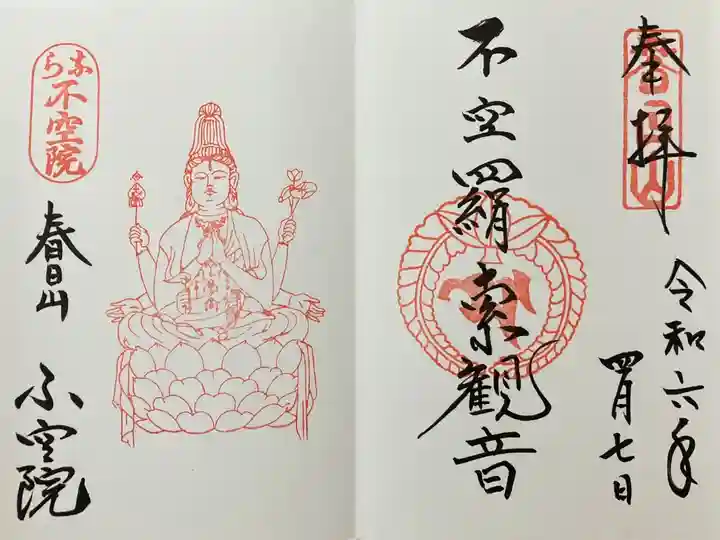 奉拝
春日山
令和六年
四月七日
不空羂索観音
なら
不空院
春日山
不空院